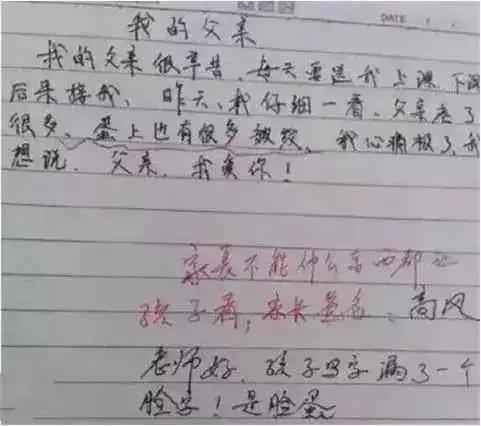 DATE
我的父亲
我的父亲很辛苦、每天要送我上课、下课
后来接我,昨天、我仔细一看、父亲老了
很多、蛋上也有很多皱纹、我心痛极了,我
想说、父亲、我爱你!
家长不能什么东西都让
孩子看,家长签名、高风
老师好、孩子写字漏了一个
脸字!是脸蛋